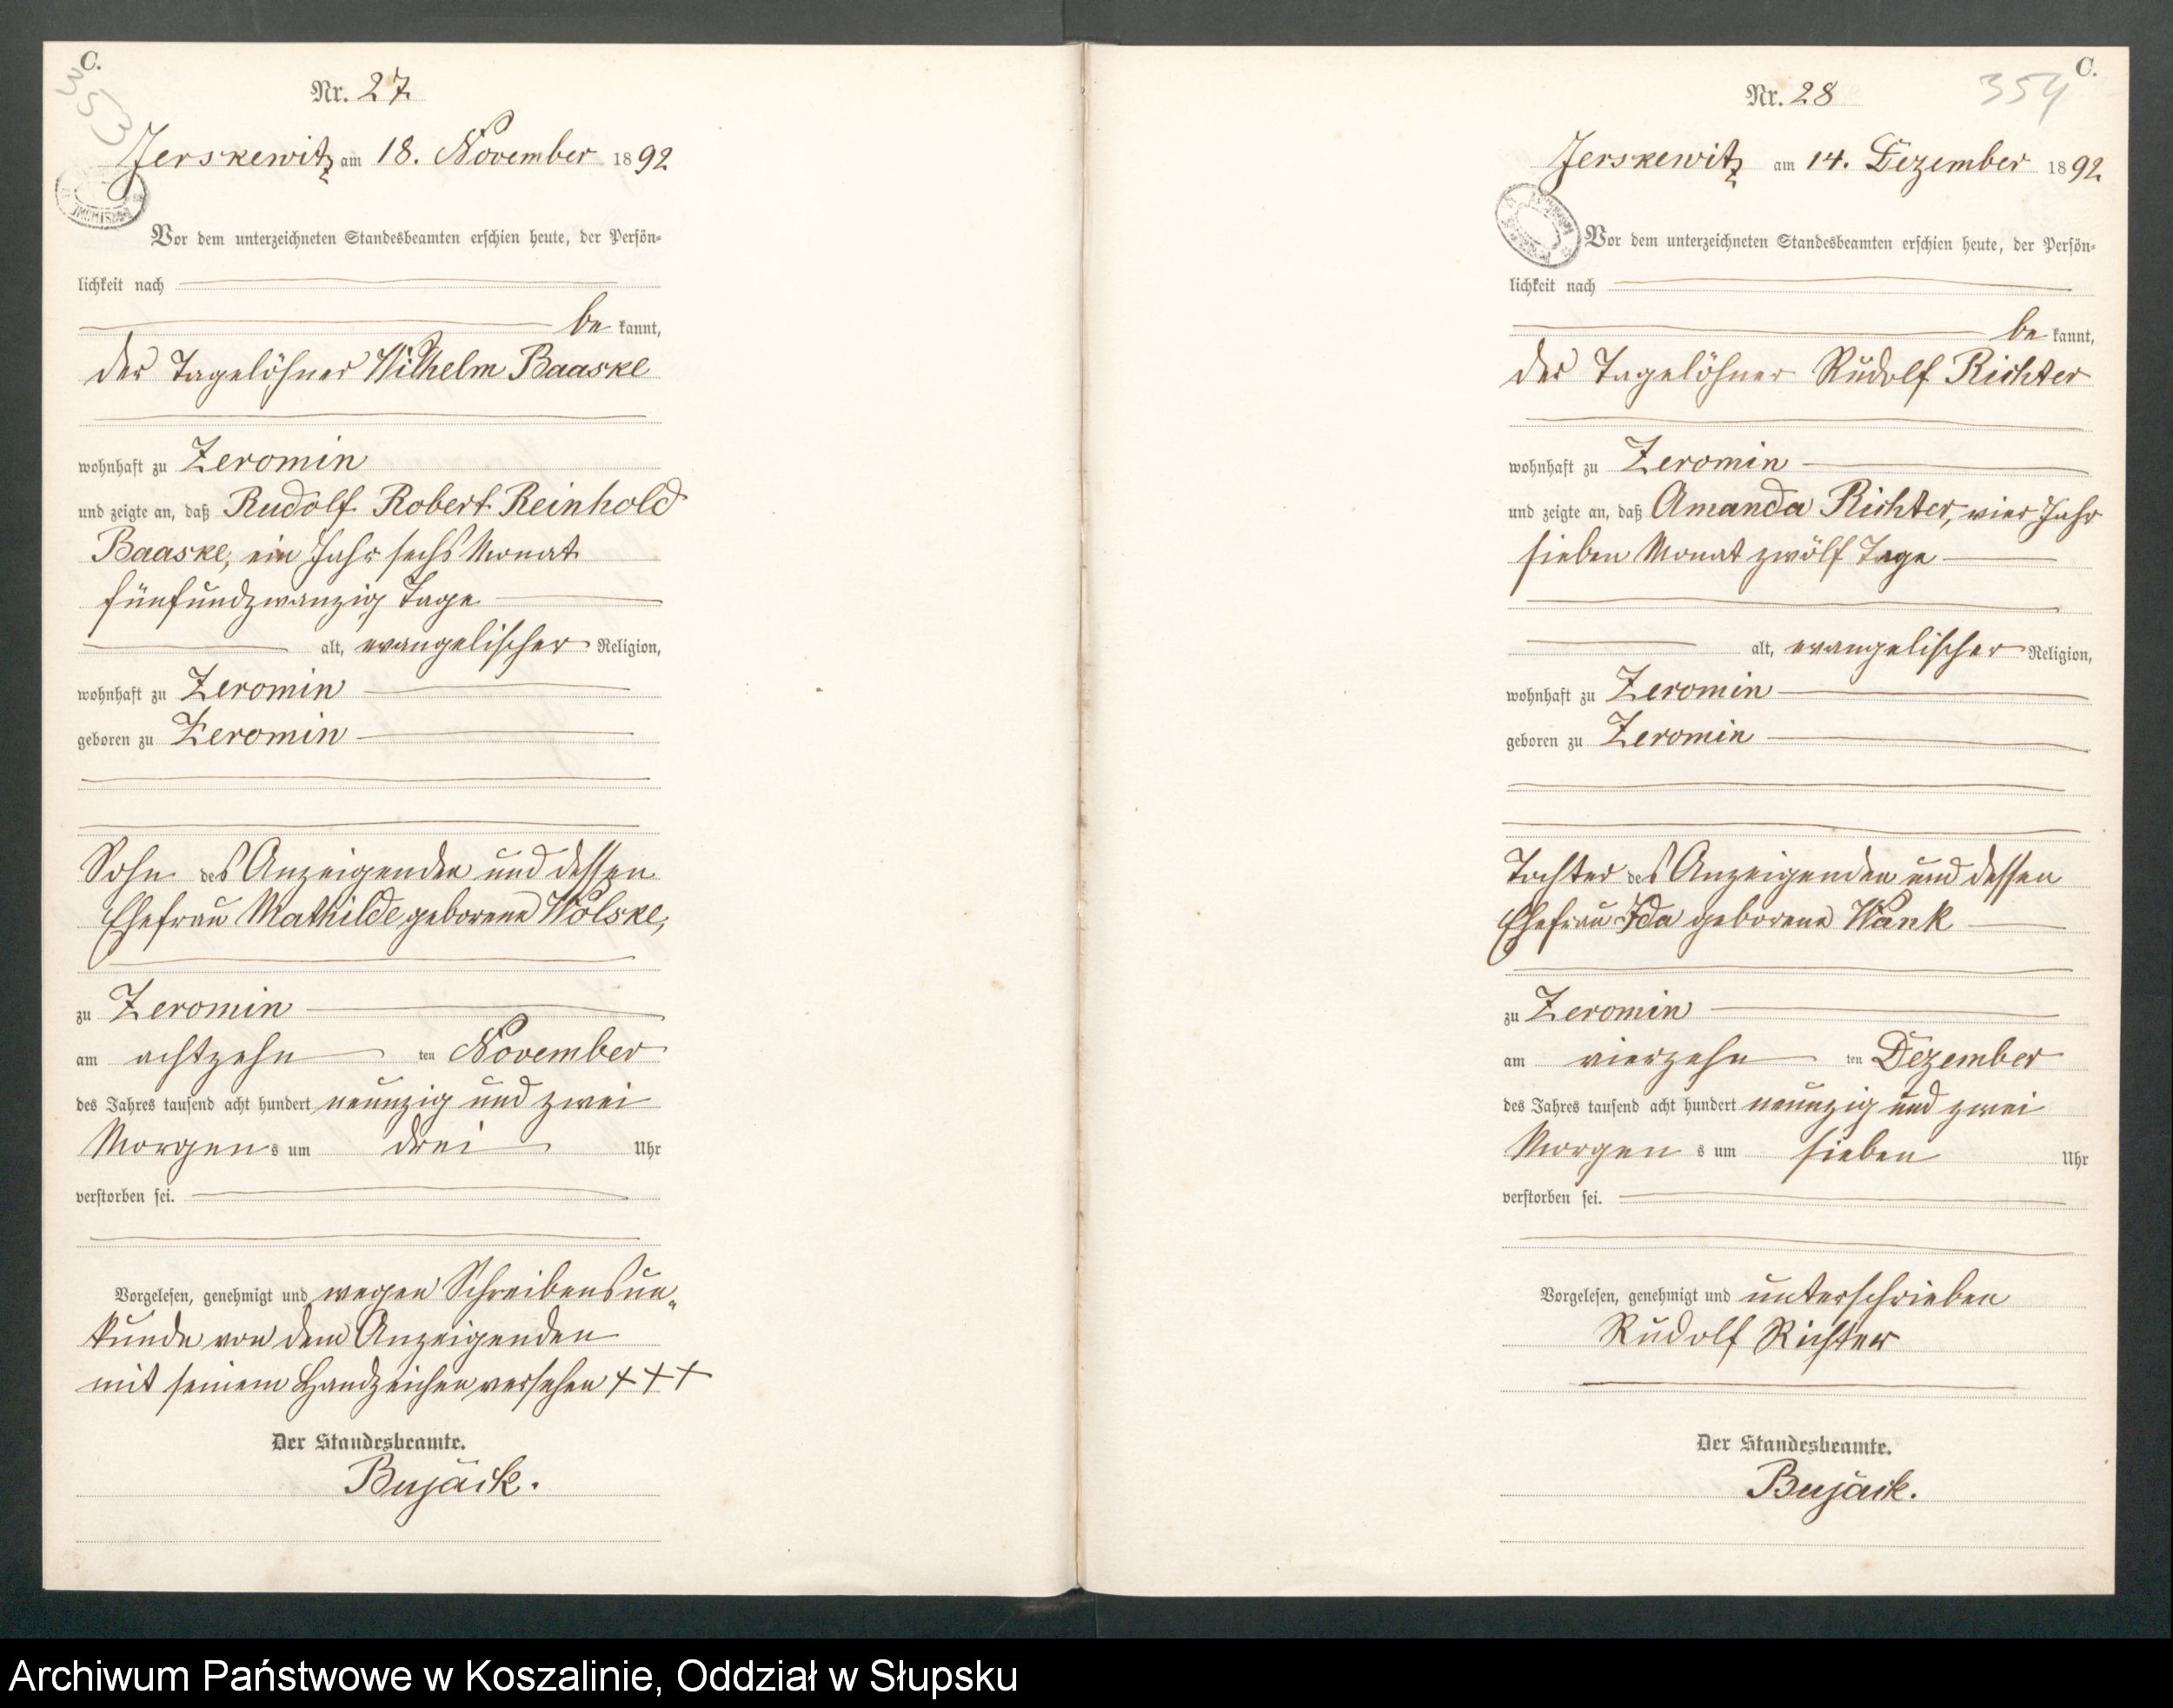 C.
353
Nr. 27
Jerskewitz am 18. November 1892
Vor dem unterzeichneten Standesbeamten erschien heute, der Persön-
lichkeit nach
be kannt,
der Tagelöhner Wilhelm Baaske
wohnhaft zu Zeromin
und zeigte an, daß Rudolf Robert Reinhold
Baaske, ein Jahr sechs Monat
fünfundzwanzig Tage
alt, evangelischer Religion,
wohnhaft zu Zeromin
geboren zu Zeromin
Sohn des Anzeigenden und dessen
Ehefrau Mathilde geborene Wolske,
zu Zeromin
am achtzehn ten November
des Jahres tausend acht hundert neunzig und zwei
Morgens um drei Uhr
verstorben sei.
Vorgelesen, genehmigt und wegen Schreibensun„
kunde von dem Anzeigenden
mit seinem Handzeichen versehen +++
Der Standesbeamte.
Bujack.
C.
354
Nr. 28
Jerskewitz am 14. Dezember 1892
Vor dem unterzeichneten Standesbeamten erschien heute, der Persön-
lichkeit nach
be kannt,
der Tagelöhner Rudolf Richter
wohnhaft zu Zeromin
und zeigte an, daß Amanda Richter, vier Jahr
sieben Monat zwölf Tage
alt, evangelischer Religion,
wohnhaft zu Zeromin
geboren zu Zeromin
Tochter des Anzeigenden und dessen
Ehefrau Ida geborene Wank
zu Zeromin
am vierzehn ten Dezember
des Jahres tausend acht hundert neunzig und zwei
Morgens um sieben Uhr
verstorben sei.
Vorgelesen, genehmigt und unterschrieben
Rudolf Richter
Der Standesbeamte.
Bujack.
Archiwum Państwowe w Koszalinie, Oddział w Słupsku